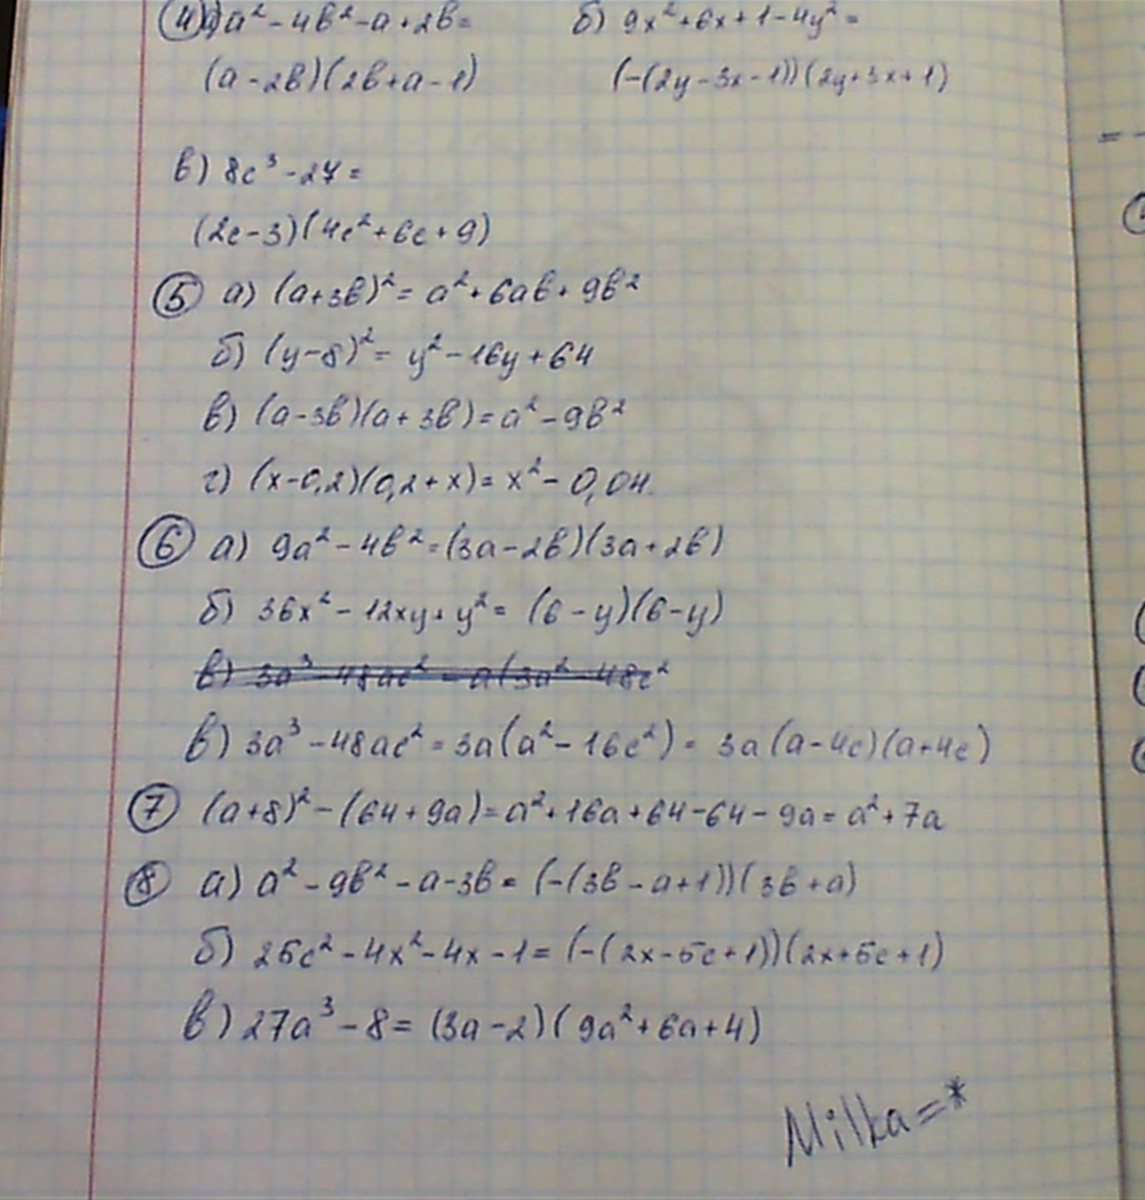 4) а) a² - 4b² - a + 2b = б) 9x² + 6x + 1 - 4y² =
(a - 2b)(2b + a - 1) (-(2y - 3x - 1))(2y + 3x + 1)
в) 8c³ - 27 =
(2c - 3)(4c² + 6c + 9)
5 а) (a + 3b)² = a² + 6ab + 9b²
б) (y - 8)² = y² - 16y + 64
в) (a - 3b)(a + 3b) = a² - 9b²
г) (x - 0,2)(0,2 + x) = x² - 0,04
6 а) 9a² - 4b² = (3a - 2b)(3a + 2b)
б) 36x² - 12xy + y² = (6 - y)(6 - y)
в) 3a³ - 48ac² = a(3a² - 48c²
в) 3a³ - 48ac² = 3a(a² - 16c²) = 3a(a - 4c)(a + 4c)
7 (a + 8)² - (64 + 9a) = a² + 16a + 64 - 64 - 9a = a² + 7a
8 а) a² - 9b² - a - 3b = (-(3b - a + 1))(3b + a)
б) 25c² - 4x² - 4x - 1 = (-(2x - 5c + 1))(2x + 5c + 1)
в) 27a³ - 8 = (3a - 2)(9a² + 6a + 4)
Milka=*